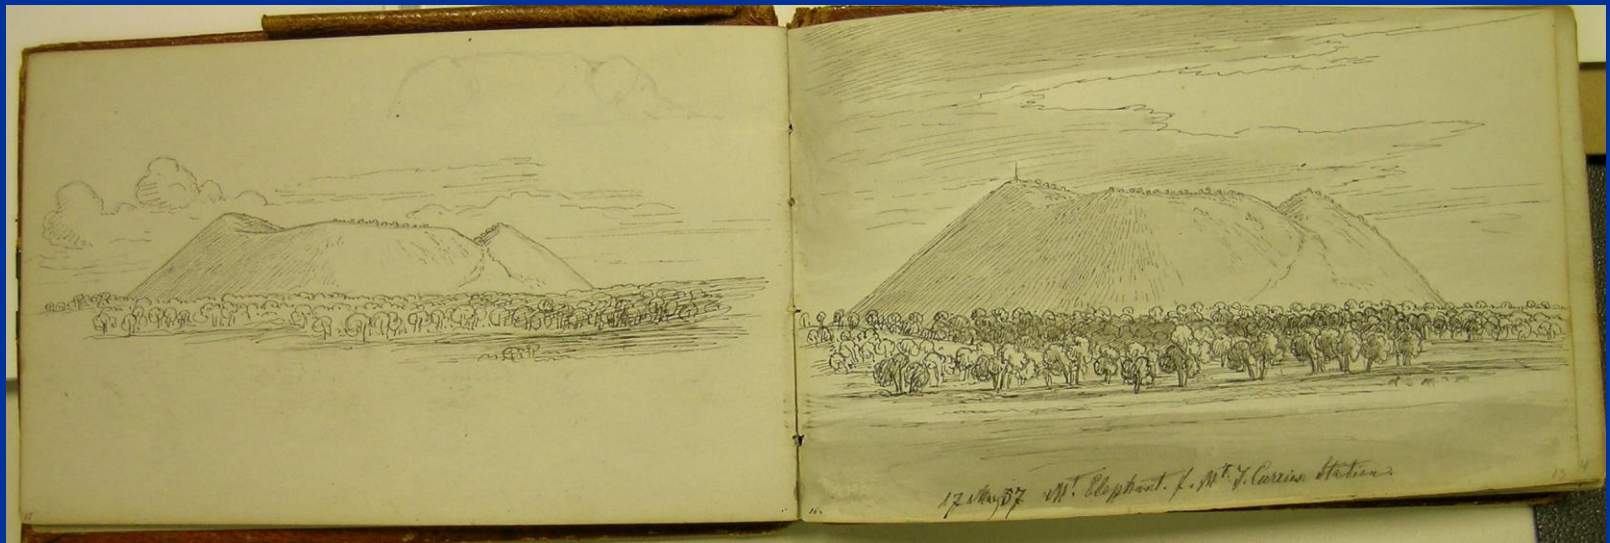 17 May 57 Mt. Elephant. f. Mr. J. Curries Station.